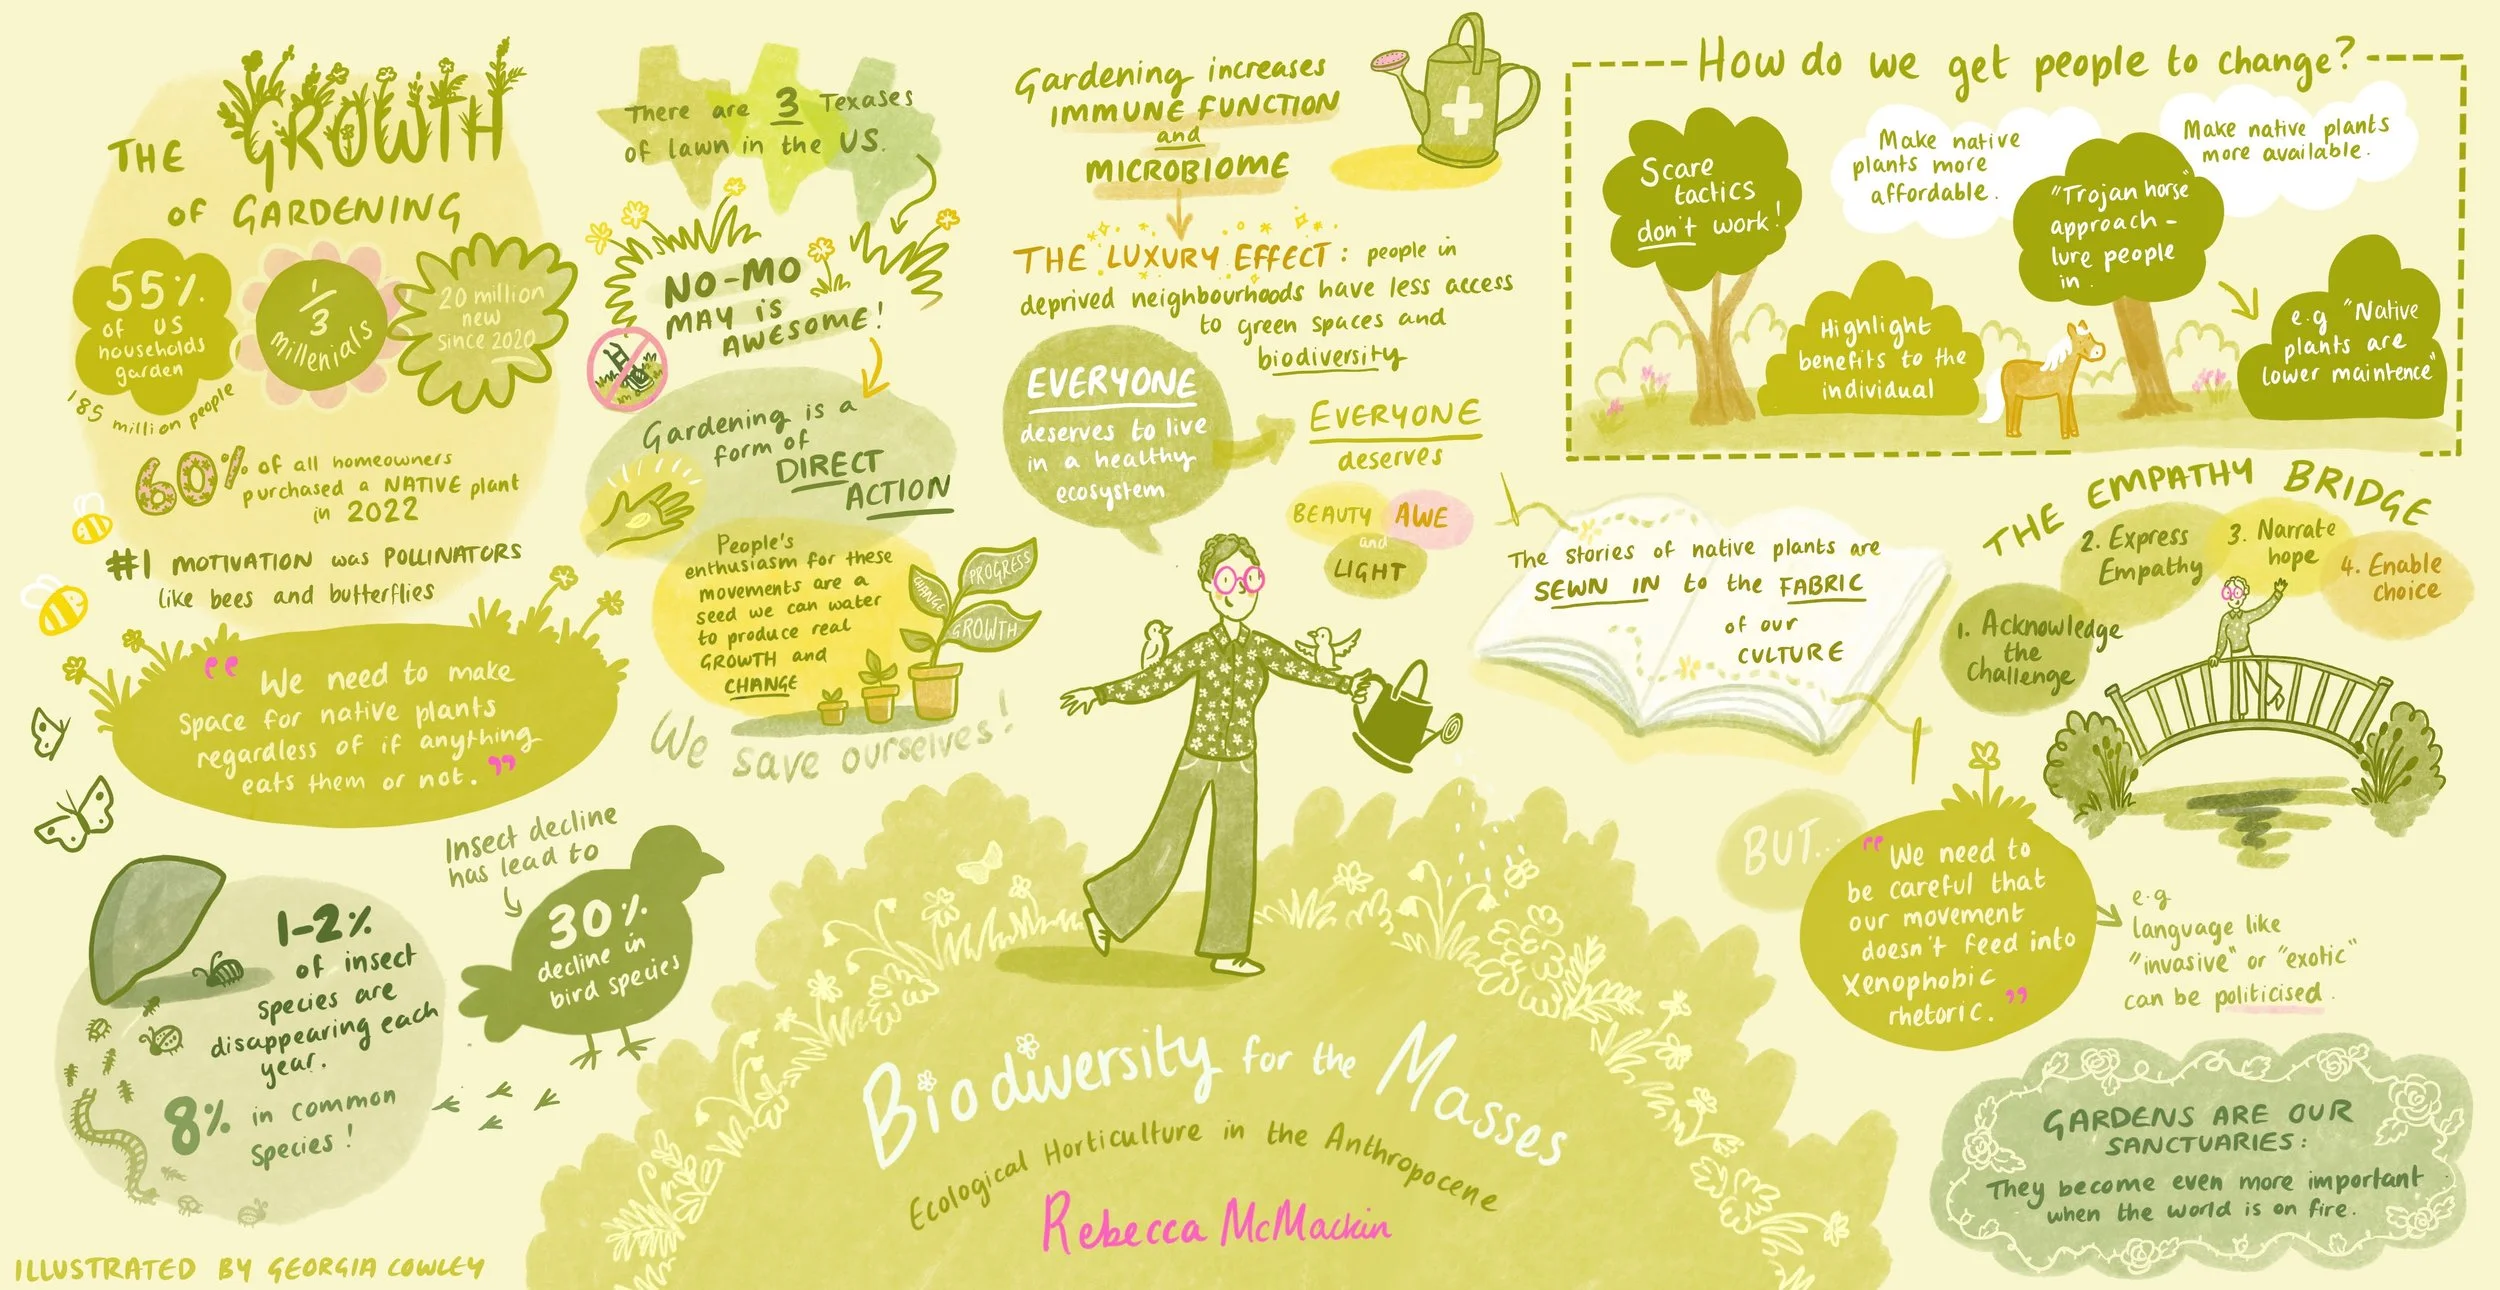 THE GROWTH
OF GARDENING
55%
OF US
households
garden
185 million people
1/3
Millenials
20 million
new
since 2020
60% of all homeowners
purchased a NATIVE plant
in 2022
#1 MOTIVATION was POLLINATORS
like bees and butterflies
"We need to make
space for native plants
regardless of if anything
eats them or not."
Insect decline
has lead to
30%
decline in
bird species
1-2%
of insect
species are
disappearing each
year.
8% in common
species!
ILLUSTRATED BY GEORGIA COWLEY
There are 3 Texases
of lawn in the US.
NO-MO
MAY is
AWESOME!
Gardening is a
form of
DIRECT
ACTION
People's
enthusiasm for these
movements are a
seed we can water
to produce real
GROWTH and
CHANGE
CHANGE
PROGRESS
GROWTH
We save ourselves!
Gardening increases
IMMUNE FUNCTION
and
MICROBIOME
THE LUXURY EFFECT: people in
deprived neighbourhoods have less access
to green spaces and
biodiversity
EVERYONE
deserves to live
in a healthy
ecosystem
EVERYONE
deserves
BEAUTY AWE
and
LIGHT
Biodiversity for the Masses
Ecological Horticulture in the Anthropocene
Rebecca McMackin
How do we get people to change?
Scare
tactics
don't work!
Make native
plants more
affordable.
Make native plants
more available.
"Trojan horse"
approach -
lure people
in.
Highlight
benefits to the
individual
e.g "Native
plants are
lower maintence"
The stories of native plants are
SEWN IN to the FABRIC
of our
CULTURE
THE EMPATHY BRIDGE
1. Acknowledge
the
Challenge
2. Express
Empathy
3. Narrate
hope
4. Enable
choice
BUT...
"We need to
be careful that
our movement
doesn't feed into
Xenophobic
rhetoric."
e.g
language like
"invasive" or "exotic"
can be politicised.
GARDENS ARE OUR
SANCTUARIES:
They become even more important
when the world is on fire.